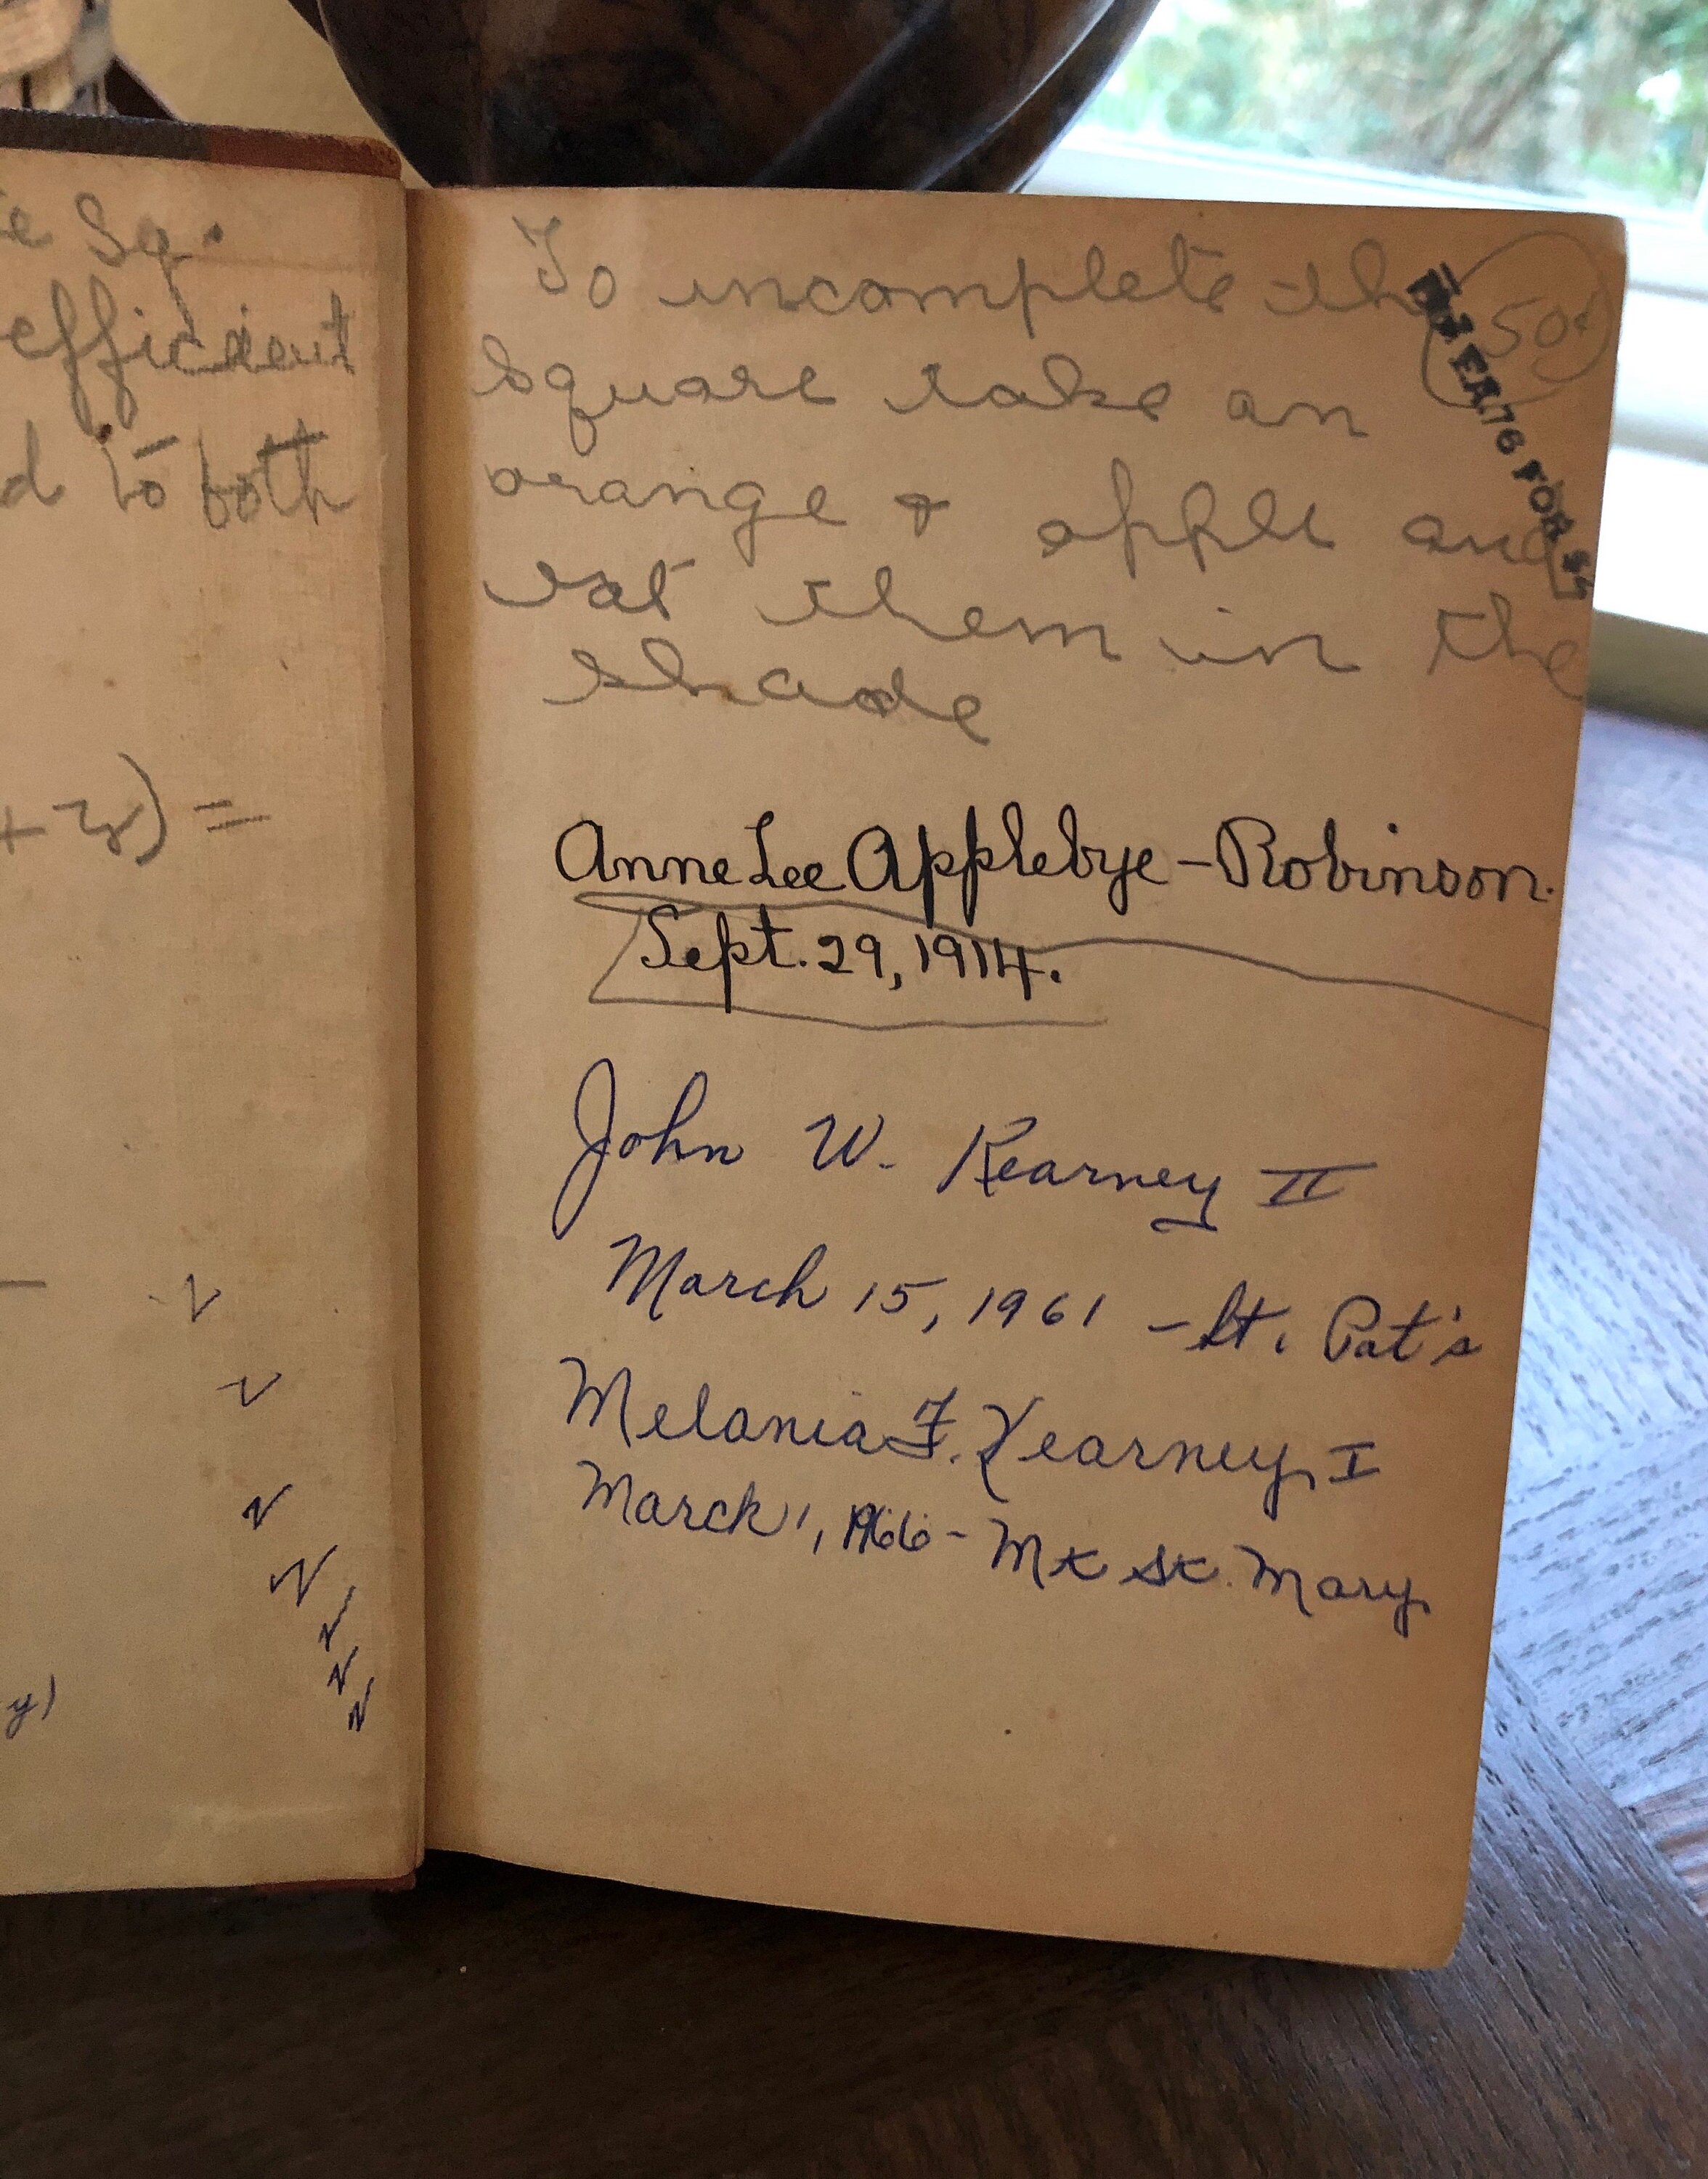 e Sq.
efficient
d to both
+ z) =
y)
To incomplete the
square take an
orange & apple and
eat them in the
shade
50¢
EA. 76 FOR $
Anne Lee Applebye-Robinson.
Sept. 29, 1914.
John W. Kearney II
March 15, 1961 - St. Pat's
Melania F. Kearney, I
March 1, 1966 - Mt St. Mary